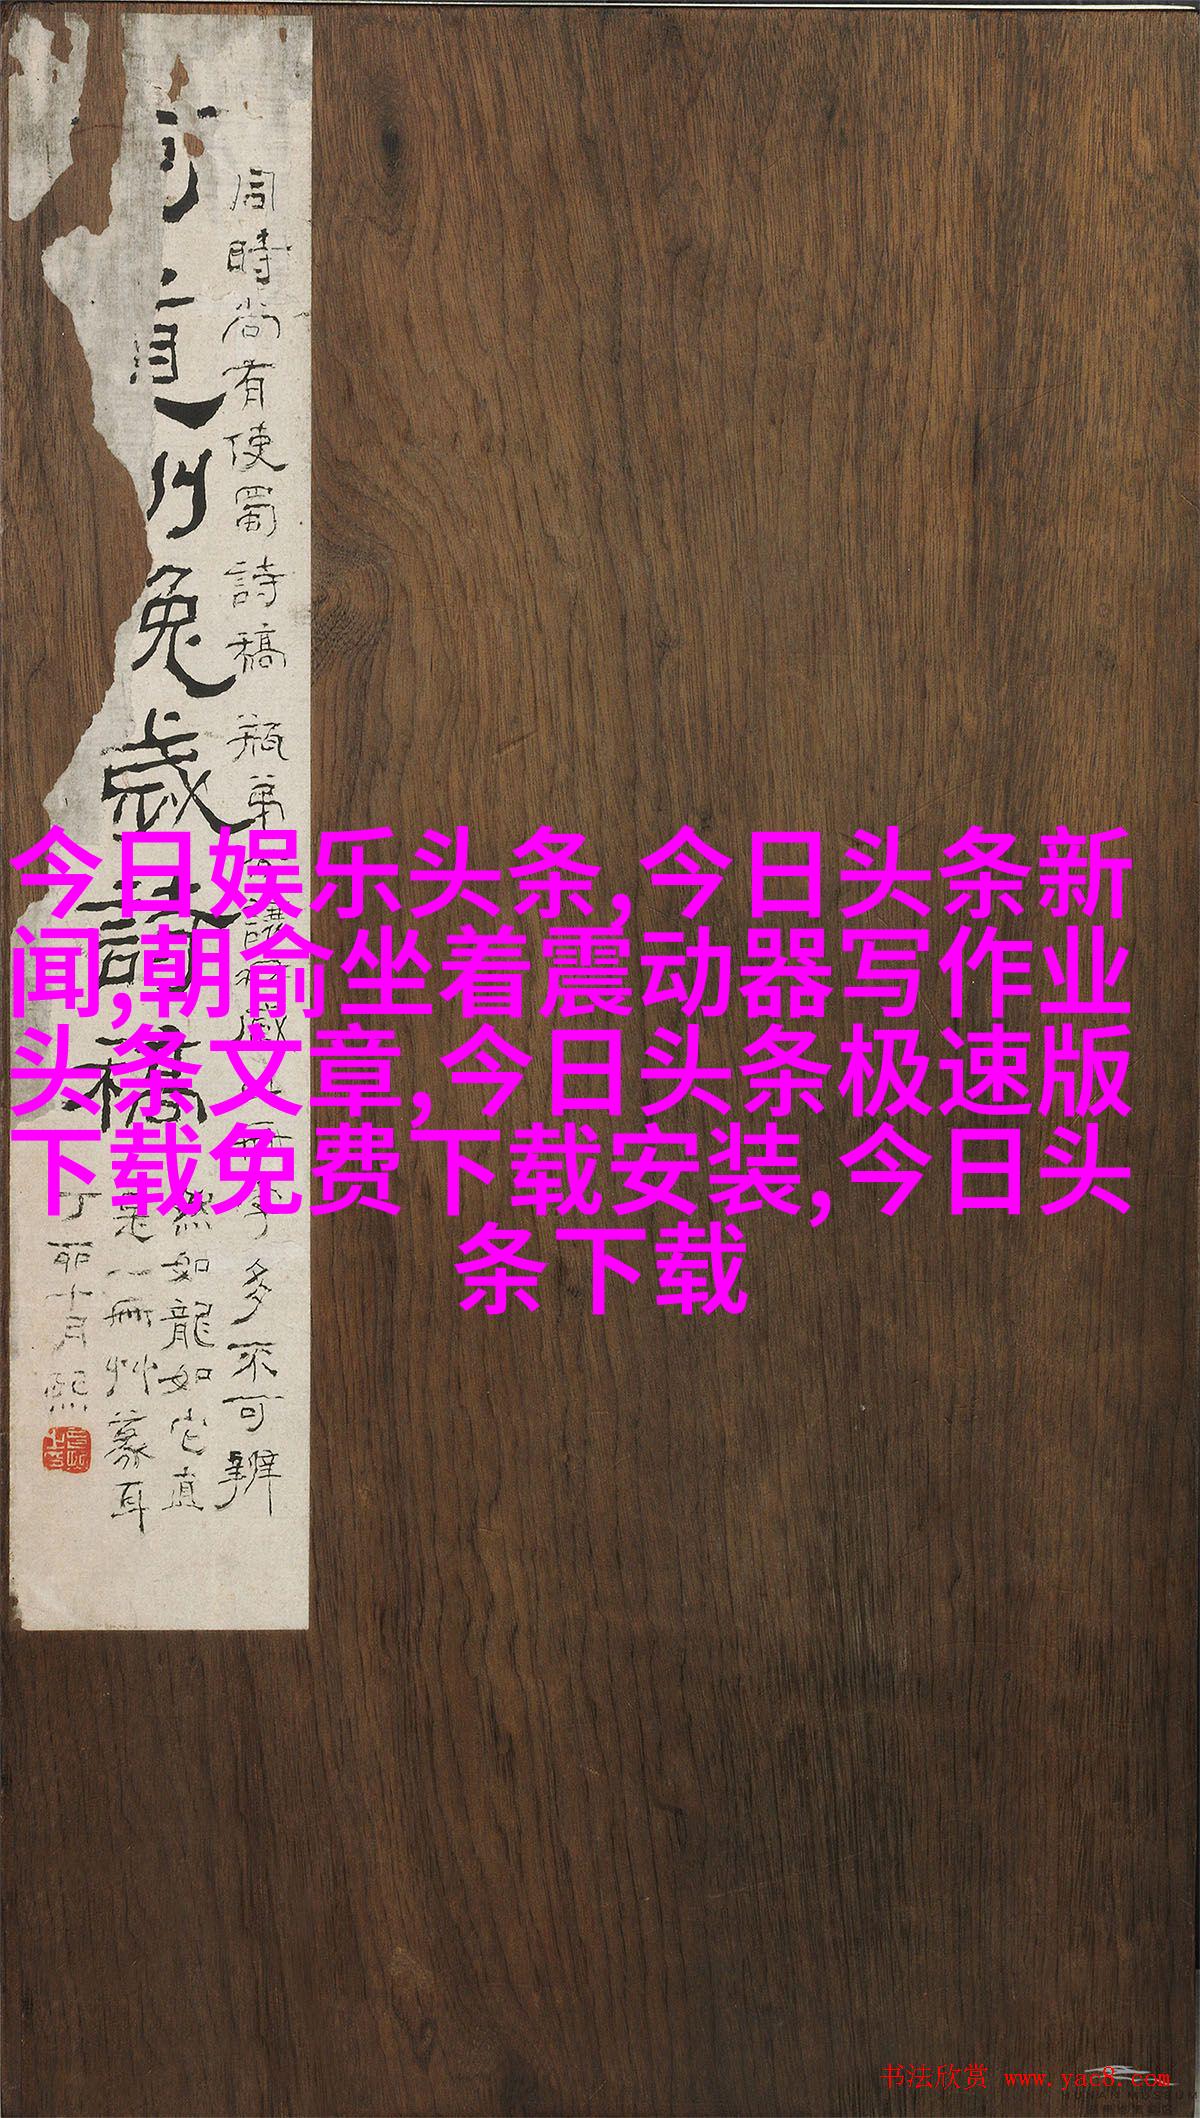 今日娱乐头条,今日头条新
闻,朝俞坐着震动器写作业
头条文章,今日头条极速版
下载免费下载安装,今日头
条下载
同時尚有使蜀詩稿
兔歲詩稿
多不可辨
然如龍如它直
是一冊艸篆耳
丁卯十月熙
书法欣赏 www.yac8.com
HUNAN MUSEUM